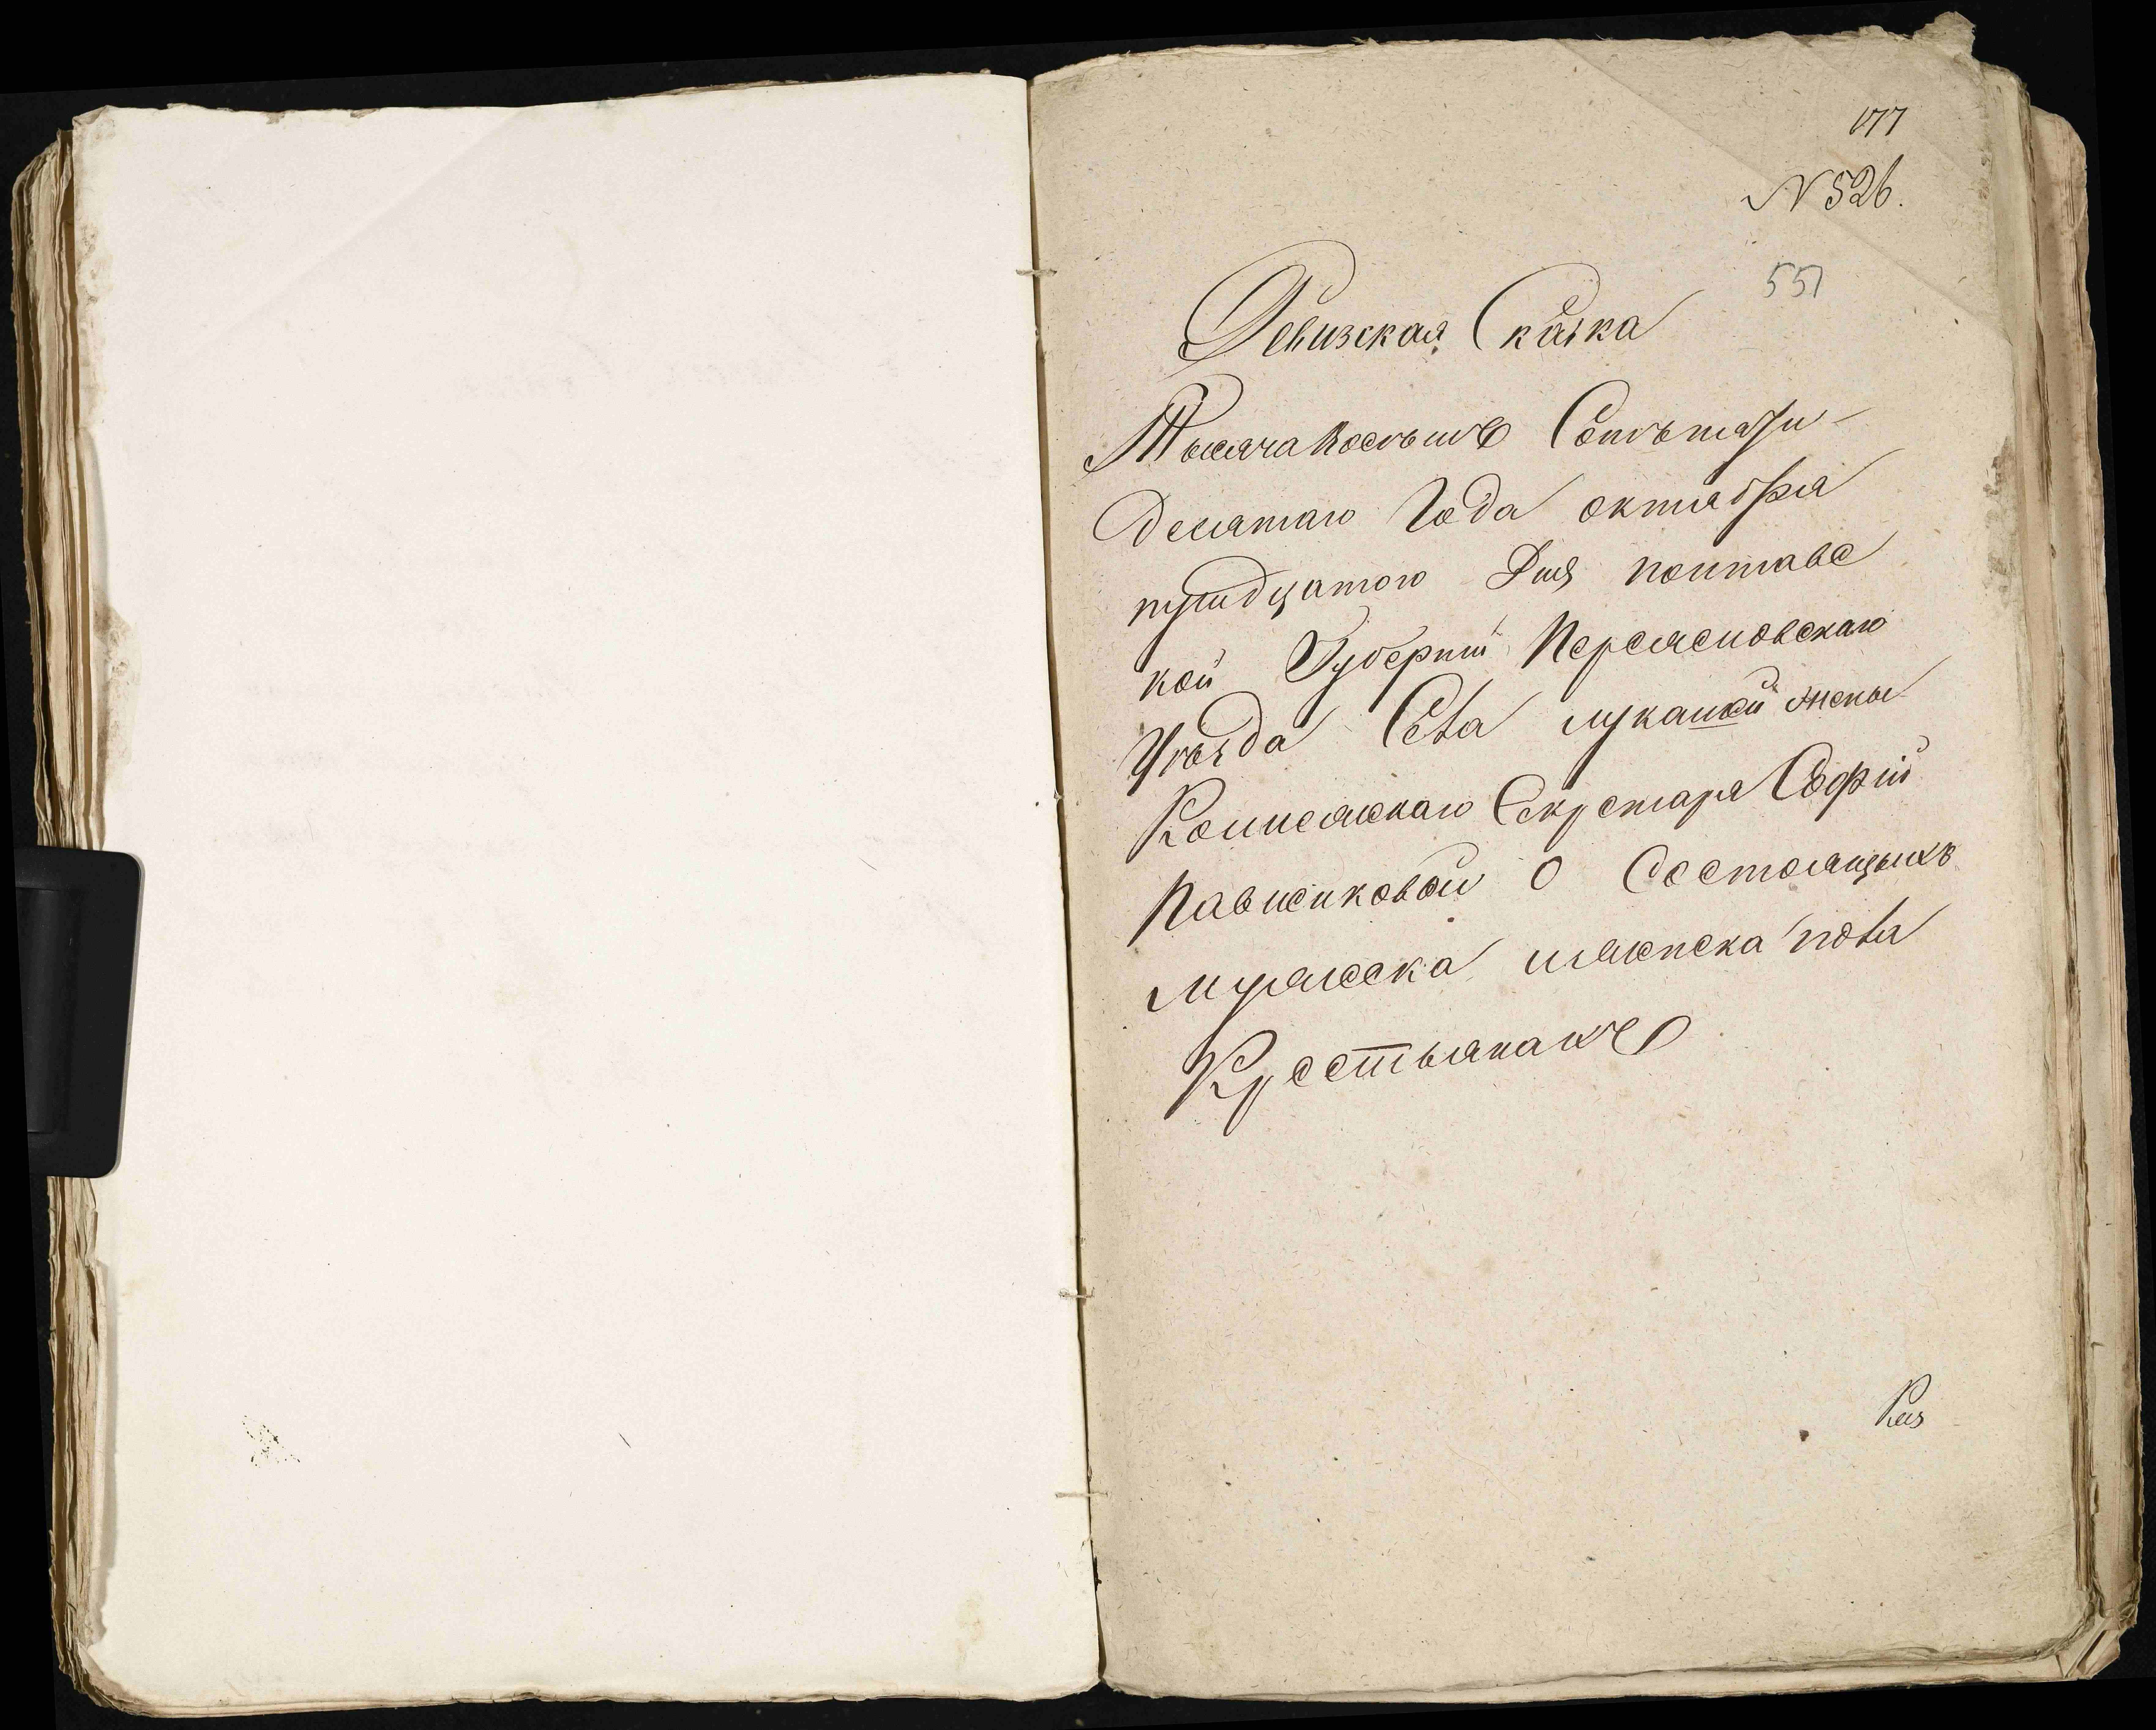 177
N 526.
551
Ревизская Сказка
Тысяча восемь Сотъ пятъ
десятаго Года октября
тридцатого Дня полтавс
кой Губерніи Переясловскаго
Уѣзда Села лукашей жены
Коллежскаго Секретаря Софіи
Павленковой О Состоящыхъ
мужеска и женска пола
Крестьянахъ